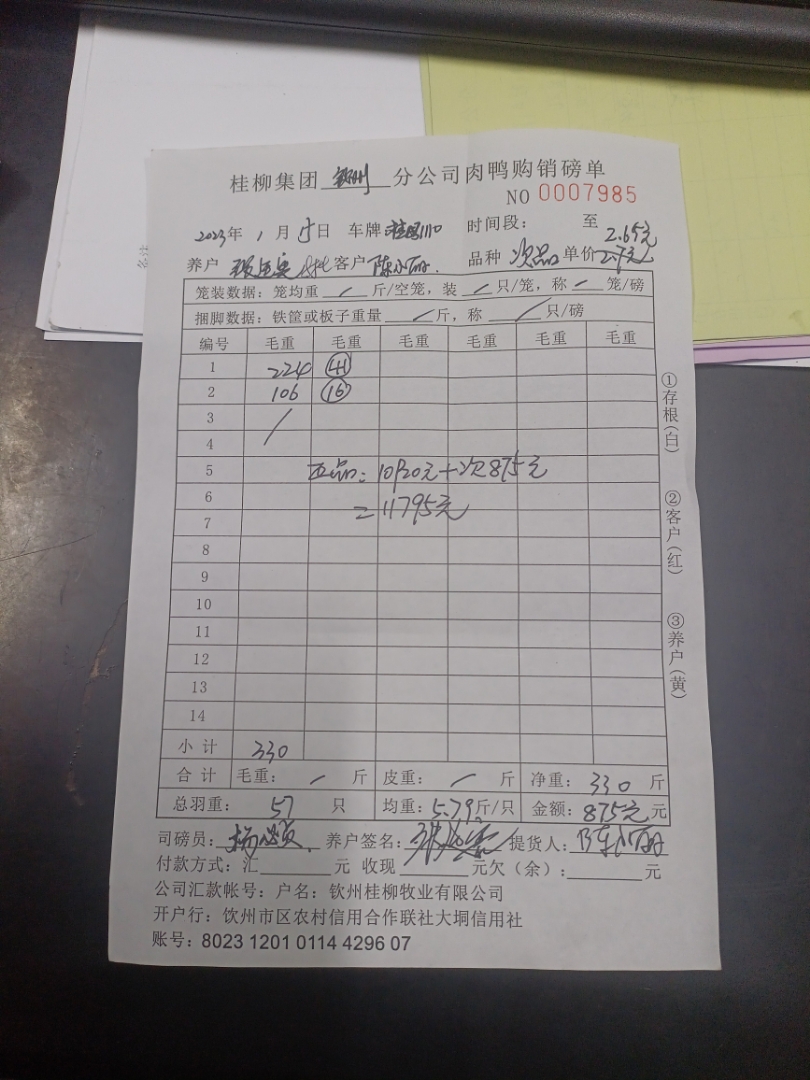 桂柳集团 钦州 分公司肉鸭购销磅单
NO 0007985
2023年 1 月 15日 车牌 时间段： 至
2.65元
养户 客户 陈小丽. 品种 次品 单价 2.7元
笼装数据：笼均重 / 斤/空笼，装 / 只/笼，称 / 笼/磅
捆脚数据：铁筐或板子重量 / 斤，称 / 只/磅
编号 毛重 毛重 毛重 毛重 毛重 毛重
1 224 41
2 106 16
3 /
4
5 正品：10920元+次875元
6 =11795元
7
8
9
10
11
12
13
14
小计 330
合计 毛重： / 斤 皮重： / 斤 净重：330 斤
总羽重： 57 只 均重：5.79斤/只 金额：875元 元
司磅员： 养户签名： 提货人：陈小丽
付款方式：汇 元 收现 元欠（余）： 元
公司汇款帐号：户名：钦州桂柳牧业有限公司
开户行：饮州市区农村信用合作联社大垌信用社
账号：8023 1201 0114 4296 07
①存根（白）
②客户（红）
③养户（黄）
备注